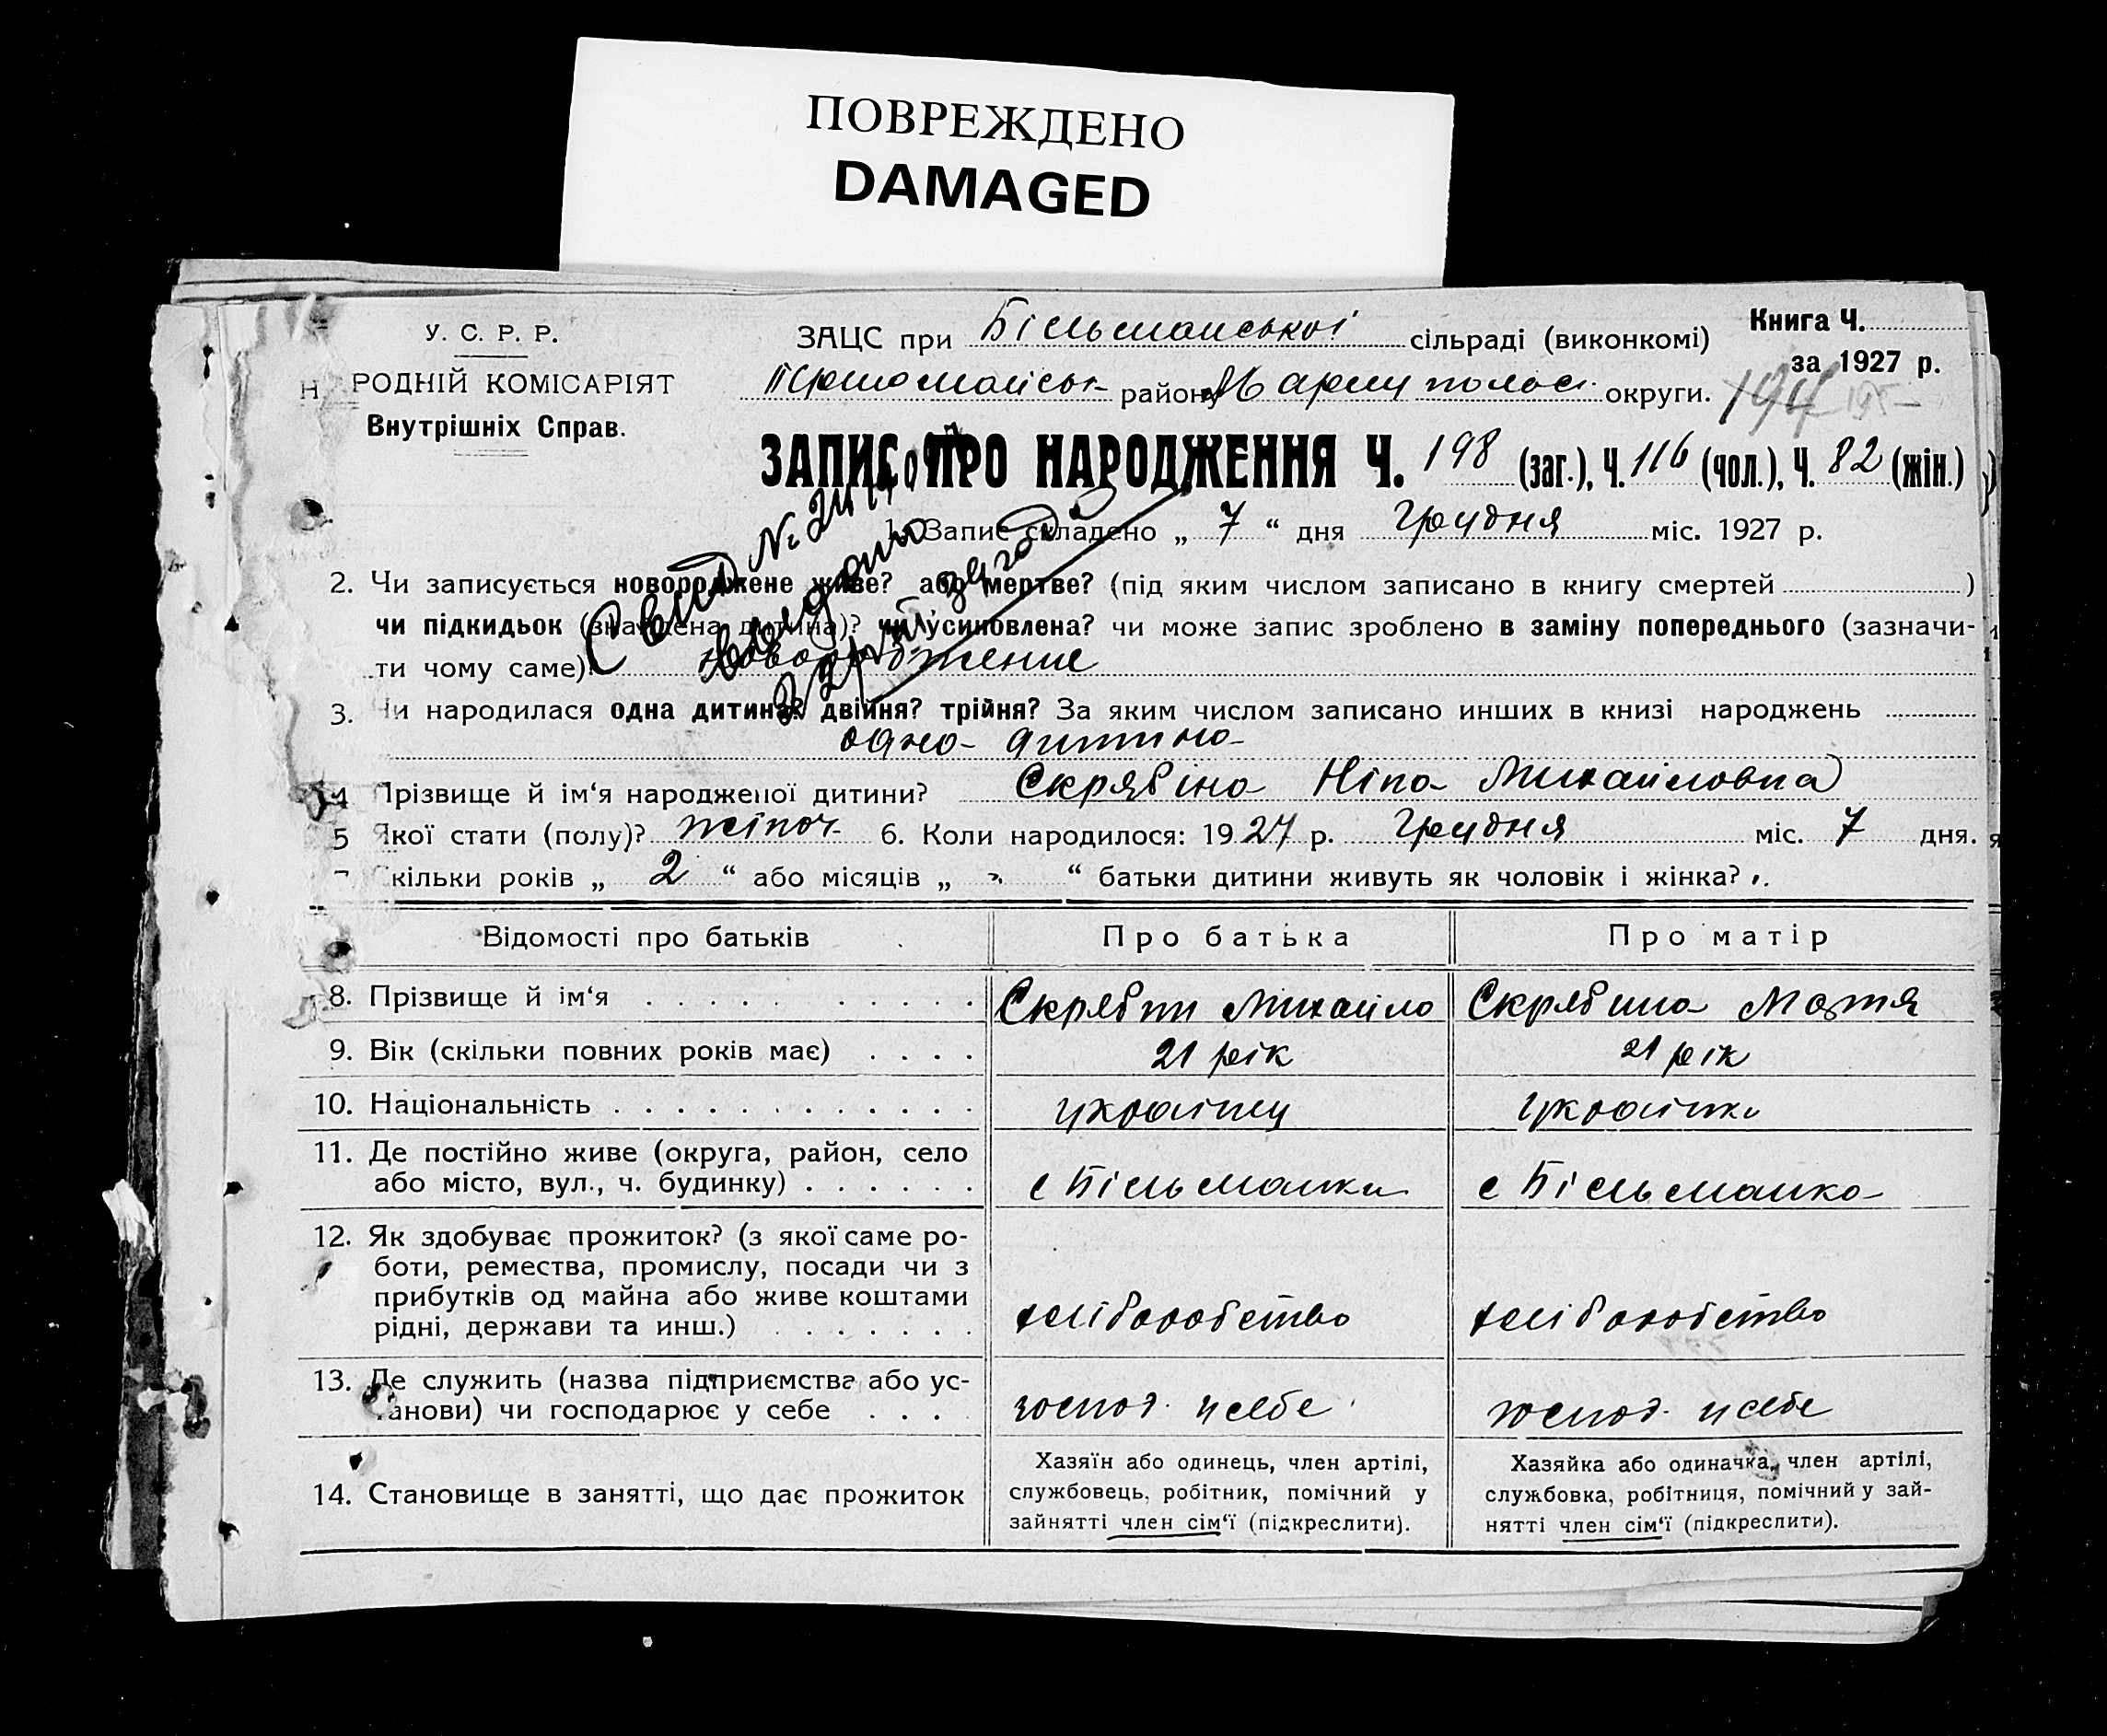 ПОВРЕЖДЕНО
DAMAGED
У. С. Р. Р.
Н РОДНІЙ КОМІСАРІЯТ
Внутрішніх Справ.
ЗАЦС при Більманської сільраді (виконкомі)
Книга Ч.
за 1927 р.
Першомайськ району Маріупольс. округи.
194 195
ЗАПИС ПРО НАРОДЖЕННЯ Ч. 198 (заг.), Ч. 116 (чол.), Ч. 82 (жін.)
1. Запис складено „ 7 “ дня Грудня міс. 1927 р.
Свид №
2. Чи записується новороджене живе? або мертве? (під яким числом записано в книгу смертей )
чи підкидьок (знайдена дитина)? чи усиновлена? чи може запис зроблено в заміну попереднього (зазначи-
ти чому саме)
3. Чи народилася одна дитина? двійня? трійня? За яким числом записано инших в книзі народжень
одна дитина
4 Прізвище й ім‘я народженої дитини? Скрябіна Ніна Михайловна
5 Якої стати (полу)? жіноч. 6. Коли народилося: 1927 р. Грудня міс. 7 дня.
7 Скільки років „ 2 “ або місяців „ “ батьки дитини живуть як чоловік і жінка?
Відомості про батьків Про батька Про матір
8. Прізвище й ім‘я Скрябин Михайло Скрябина Мотя
9. Вік (скільки повних років має) 21 рік 21 рік
10. Національність українец українка
11. Де постійно живе (округа, район, село
або місто, вул., ч. будинку) с Більманка с Більманка
12. Як здобуває прожиток? (з якої саме ро-
боти, ремества, промислу, посади чи з
прибутків од майна або живе коштами
рідні, держави та инш.) хліборобство хліборобство
13. Де служить (назва підприємства або ус-
танови) чи господарює у себе господ. у себе господ. у себе
14. Становище в занятті, що дає прожиток
Хазяїн або одинець, член артілі,
службовець, робітник, помічний у
зайнятті член сім‘ї (підкреслити).
Хазяйка або одиначка, член артілі,
службовка, робітниця, помічний у зай-
нятті член сім‘ї (підкреслити).